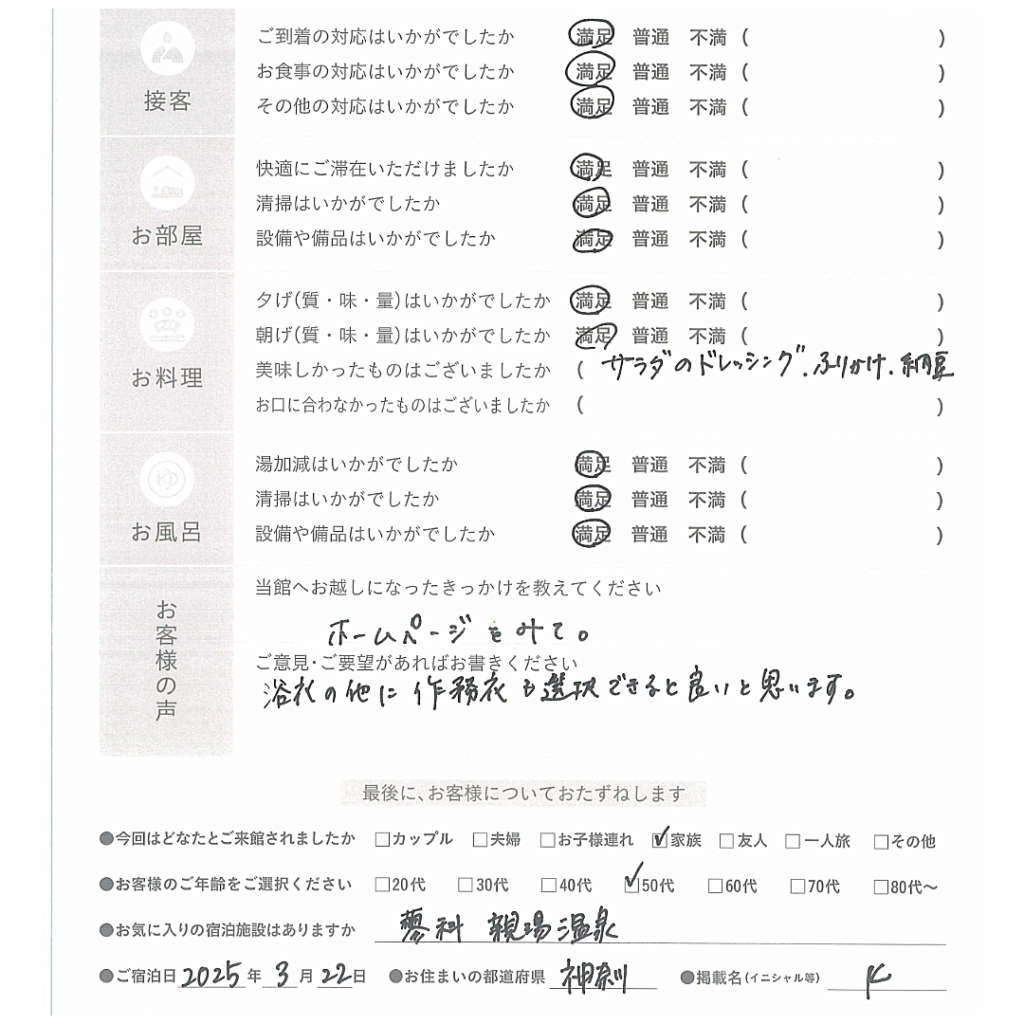 接客
ご到着の対応はいかがでしたか 満足 普通 不満 ( )
お食事の対応はいかがでしたか 満足 普通 不満 ( )
その他の対応はいかがでしたか 満足 普通 不満 ( )
お部屋
快適にご滞在いただけましたか 満足 普通 不満 ( )
清掃はいかがでしたか 満足 普通 不満 ( )
設備や備品はいかがでしたか 満足 普通 不満 ( )
お料理
夕げ(質・味・量)はいかがでしたか 満足 普通 不満 ( )
朝げ(質・味・量)はいかがでしたか 満足 普通 不満 ( )
美味しかったものはございましたか ( サラダのドレッシング、ふりかけ、納豆
お口に合わなかったものはございましたか ( )
ゆ
お風呂
湯加減はいかがでしたか 満足 普通 不満 ( )
清掃はいかがでしたか 満足 普通 不満 ( )
設備や備品はいかがでしたか 満足 普通 不満 ( )
お客様の声
当館へお越しになったきっかけを教えてください
ホームページをみて。
ご意見・ご要望があればお書きください
浴衣の他に作務衣も選択できると良いと思います。
最後に、お客様についておたずねします
●今回はどなたとご来館されましたか □カップル □夫婦 □お子様連れ ☑家族 □友人 □一人旅 □その他
●お客様のご年齢をご選択ください □20代 □30代 □40代 ☑50代 □60代 □70代 □80代〜
●お気に入りの宿泊施設はありますか 蓼科 親湯温泉
●ご宿泊日 2025年 3月 22日 ●お住まいの都道府県 神奈川 ●掲載名(イニシャル等) K